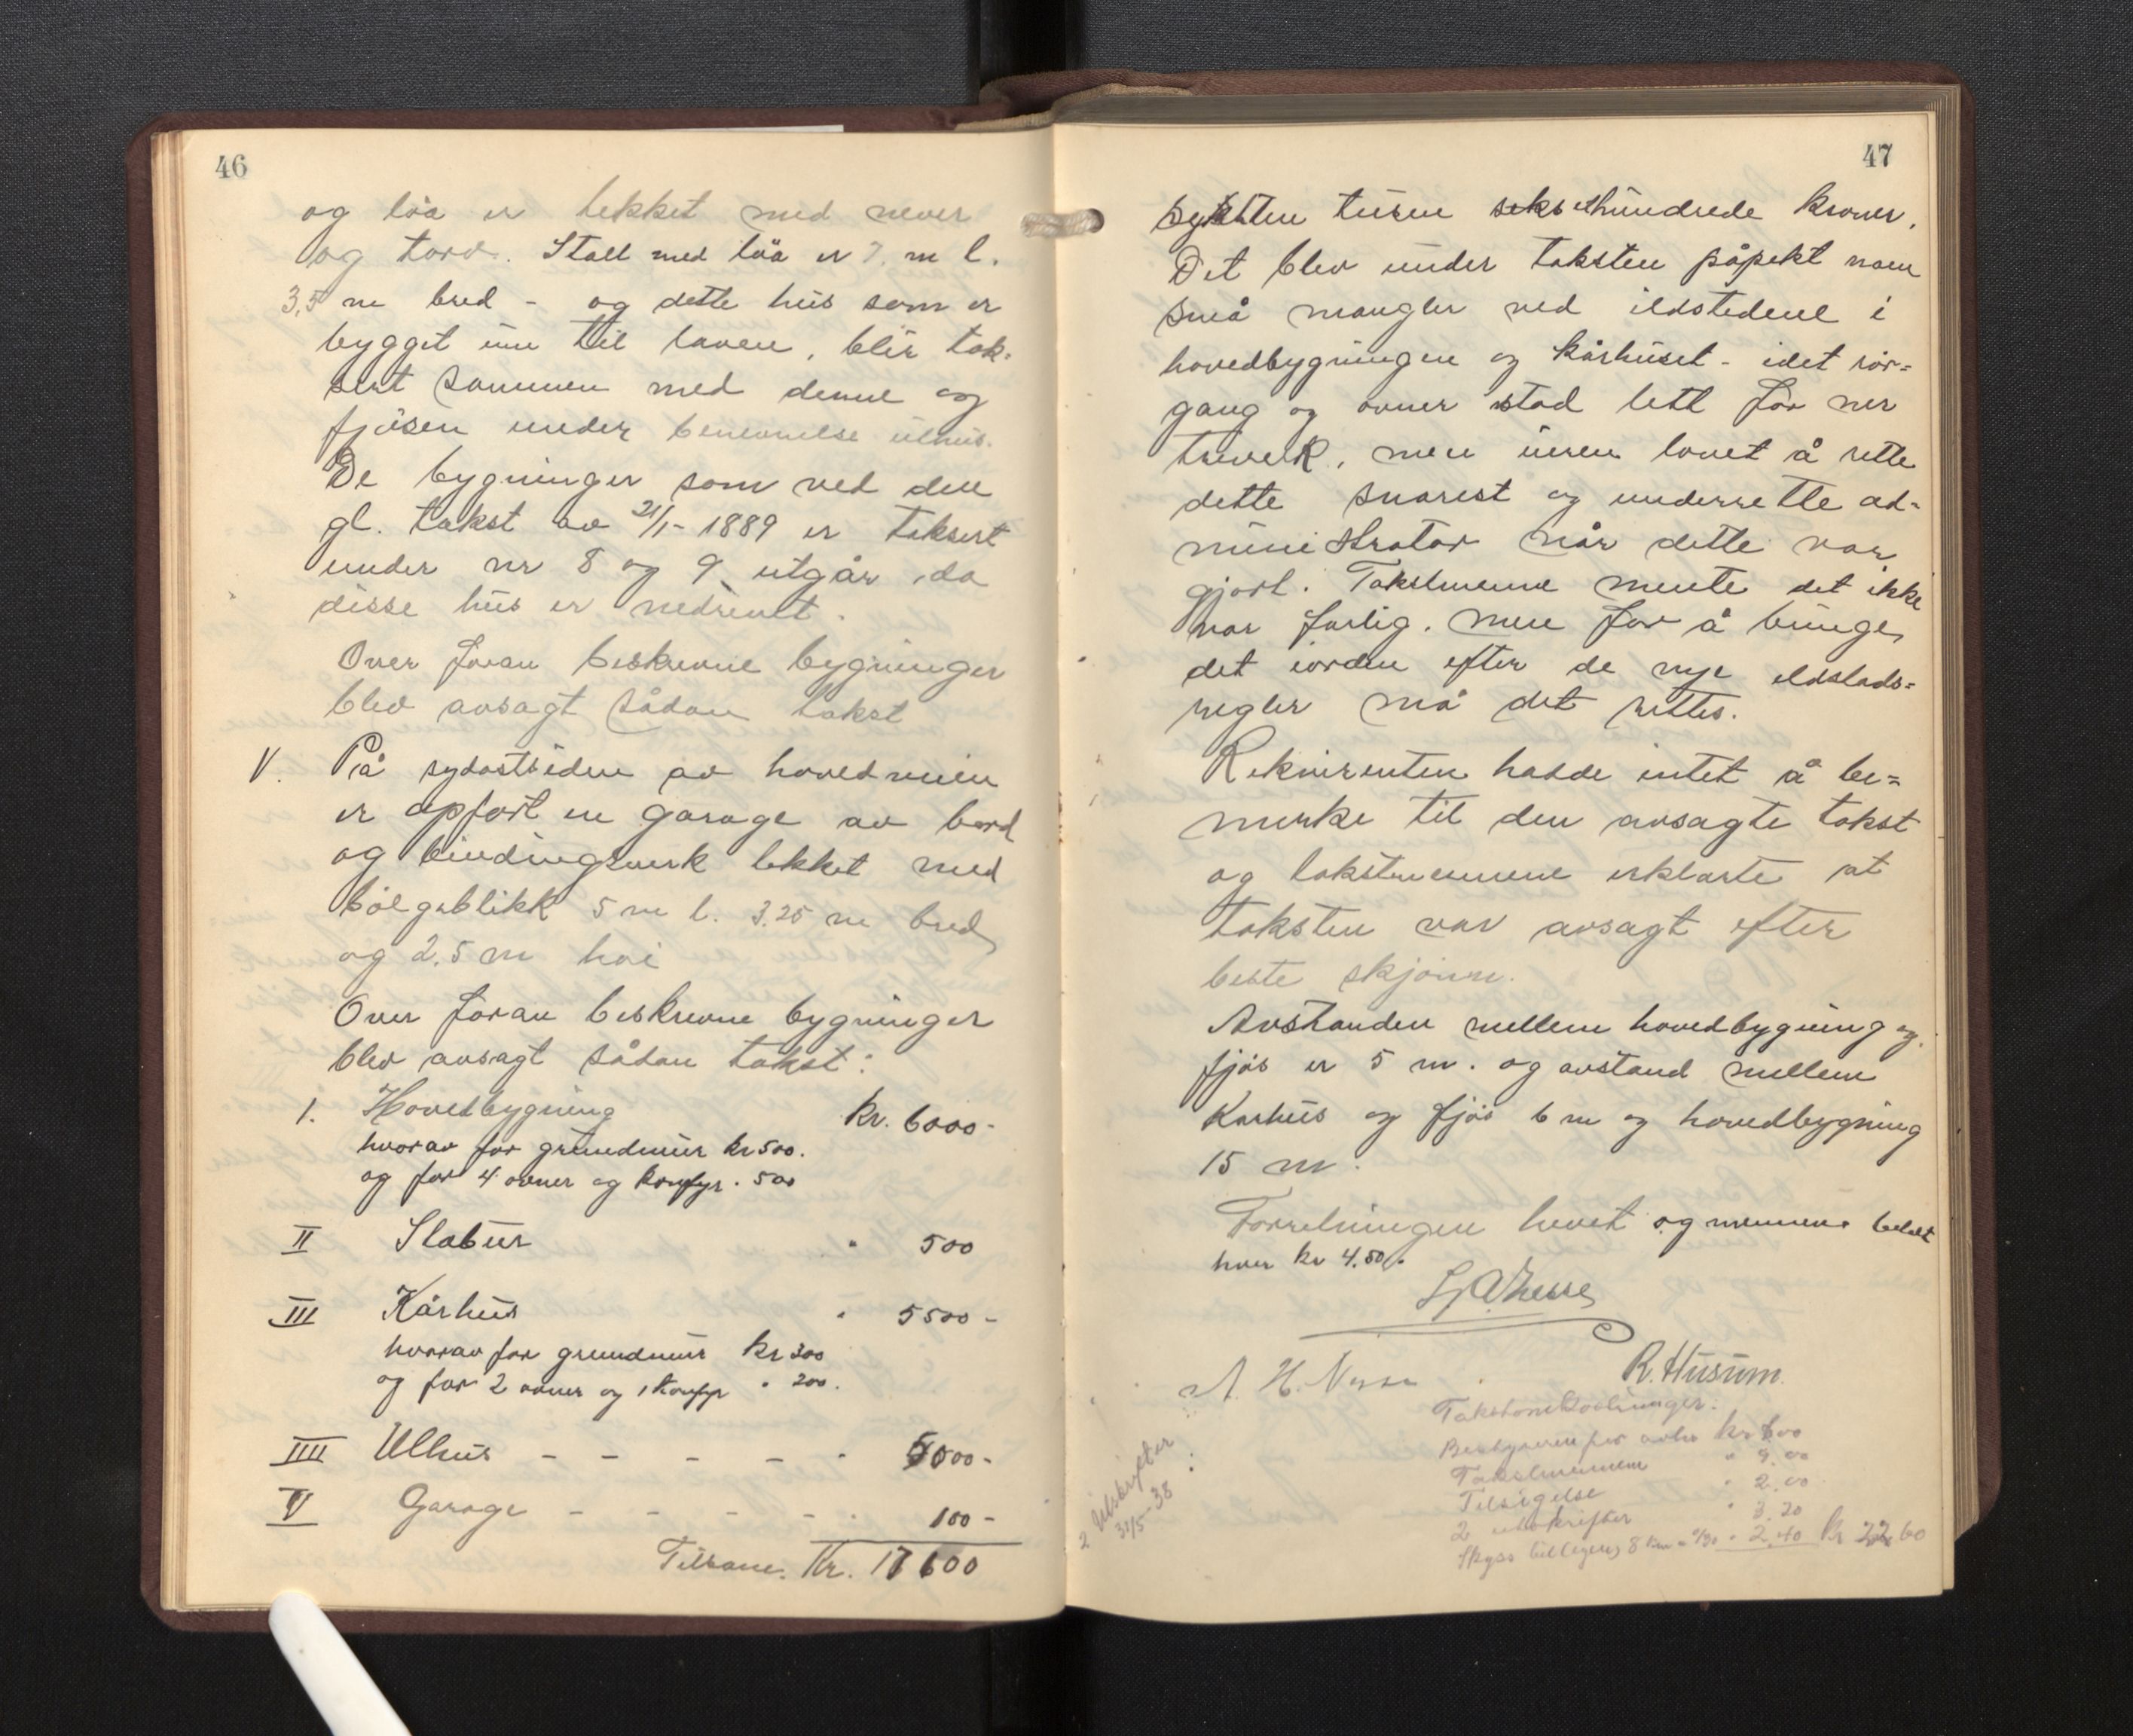 46
og löa er tekket med never
og torv. Stall med löa er 7. m l.
3,5 m bred - og dette hus som er
bygget inn til laven, blir tak-
sert sammen med denne og
fjösen under benevnelse uthus.
De bygninger som ved den
gl. takst av 21/1- 1889 er taksert
under nr 8 og 9 utgår, da
disse hus er nedrevet.
Over foran beskrevne bygninger
blev avsagt sådan takst
V. På sydostsiden av hovedveien
er opfört en garage av bord
og bindingsverk tekket med
bölgeblikk 5 m l. 3.25 m bred
og 2,5 m höi
Over foran beskrevne bygninger
blev avsagt sådan takst:
1. Hovedbygning kr. 6000-
hvorav for grundmur kr 500.
og for 4 ovner og komfyr. 500
II Stabur " 500
III Kårhus " 5500-
hvorav for grundmur kr 300
og for 2 ovner og 1 komfyr " 200.
IIII Uthus - - - - " 5000-
V Garage - - - - . 100-
Tilsam. Kr. 17600
47
sytten tusen seks hundrede kroner.
Det blev under taksten påpekt noen
små mangler ved ildstedene i
hovedbygningen og kårhuset - idet rör-
gang og ovner stod lett for nær
treverk, men eieren lovet å rette
dette snarest og underrette ad-
ministrator når dette var
gjort. Takstmennene mente det ikke
var farlig. men for å bringe
det iorden efter de nye ildsteds-
regler må det rettes.
Rekvirenten hadde intet å be-
merke til den avsagte takst
og takstmennene erklærte at
taksten var avsagt efter
beste skjönn.
Avstanden mellem hovedbygning og
fjös er 5 m. og avstand mellem
Kårhus og fjös 6 m og hovedbygning
15 m.
Forretningen hevet og mennene betalt
hver kr 4.50.
A. H. R. Husum.
Takstomkostninger:
Bestyreren for kr 6.00
Takstmennene " 9.00
Tilsigelse " 2.00
2 utskrifter " 3.20
Skyss 8 km " 2.40 kr 22.60
2 utskrifter
31/5-38